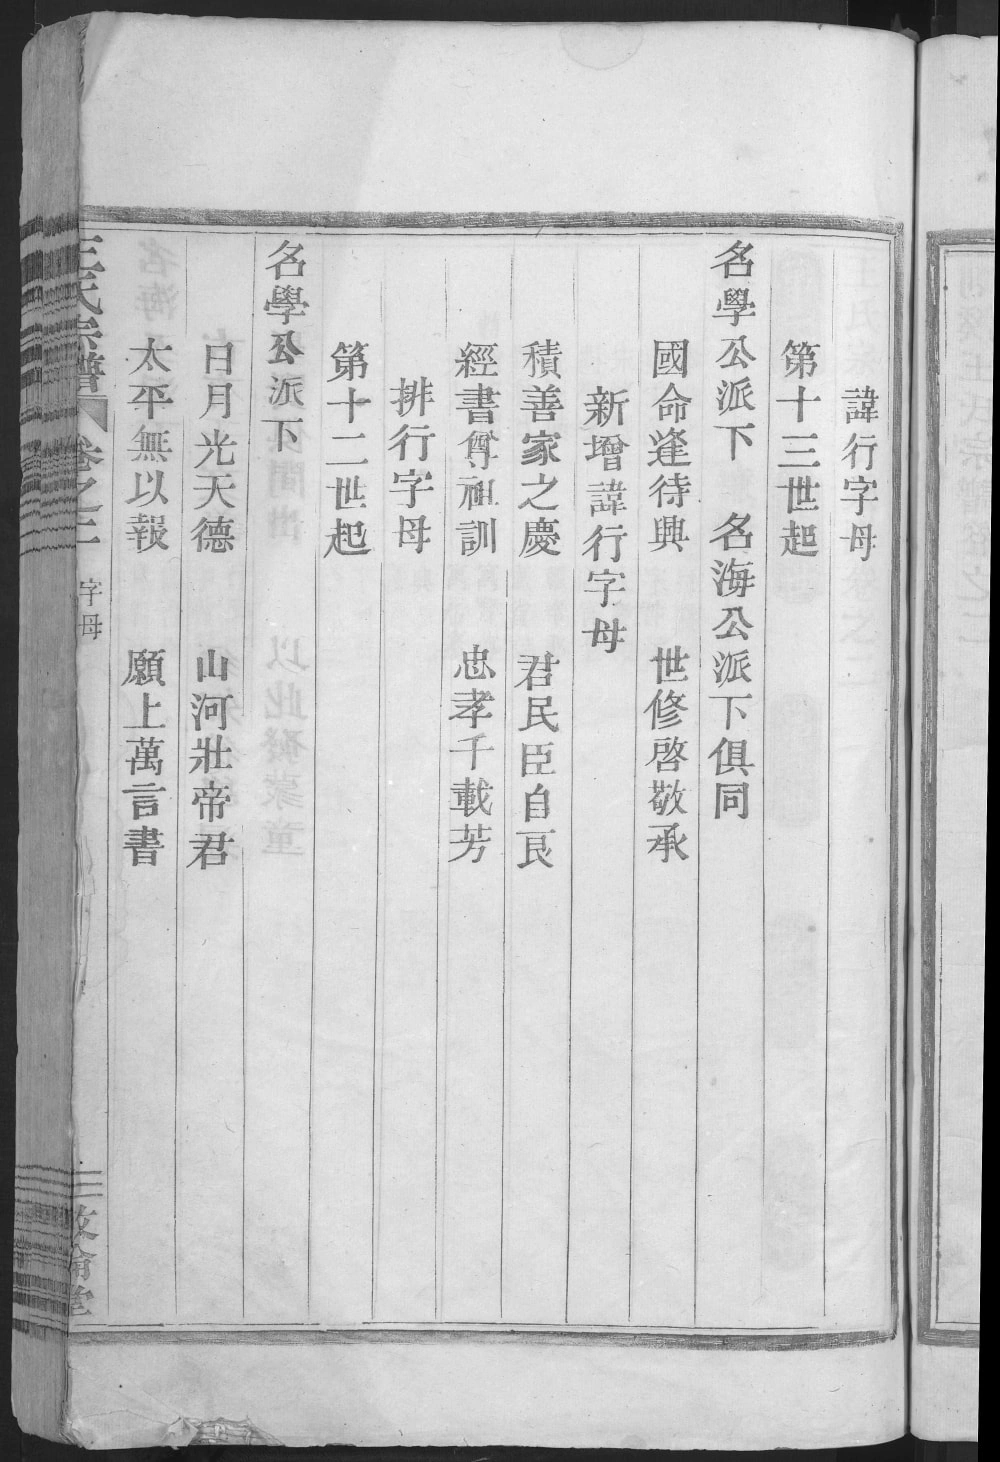 諱行字母
第十三世起
名學公派下　名海公派下俱同
國命逢待興　世修啓敬承
新增諱行字母
積善家之慶　君民臣自良
經書尊祖訓　忠孝千載芳
排行字母
第十二世起
名學公派下
日月光天德　山河壯帝君
太平無以報　願上萬言書
王氏宗譜　卷之二　字母